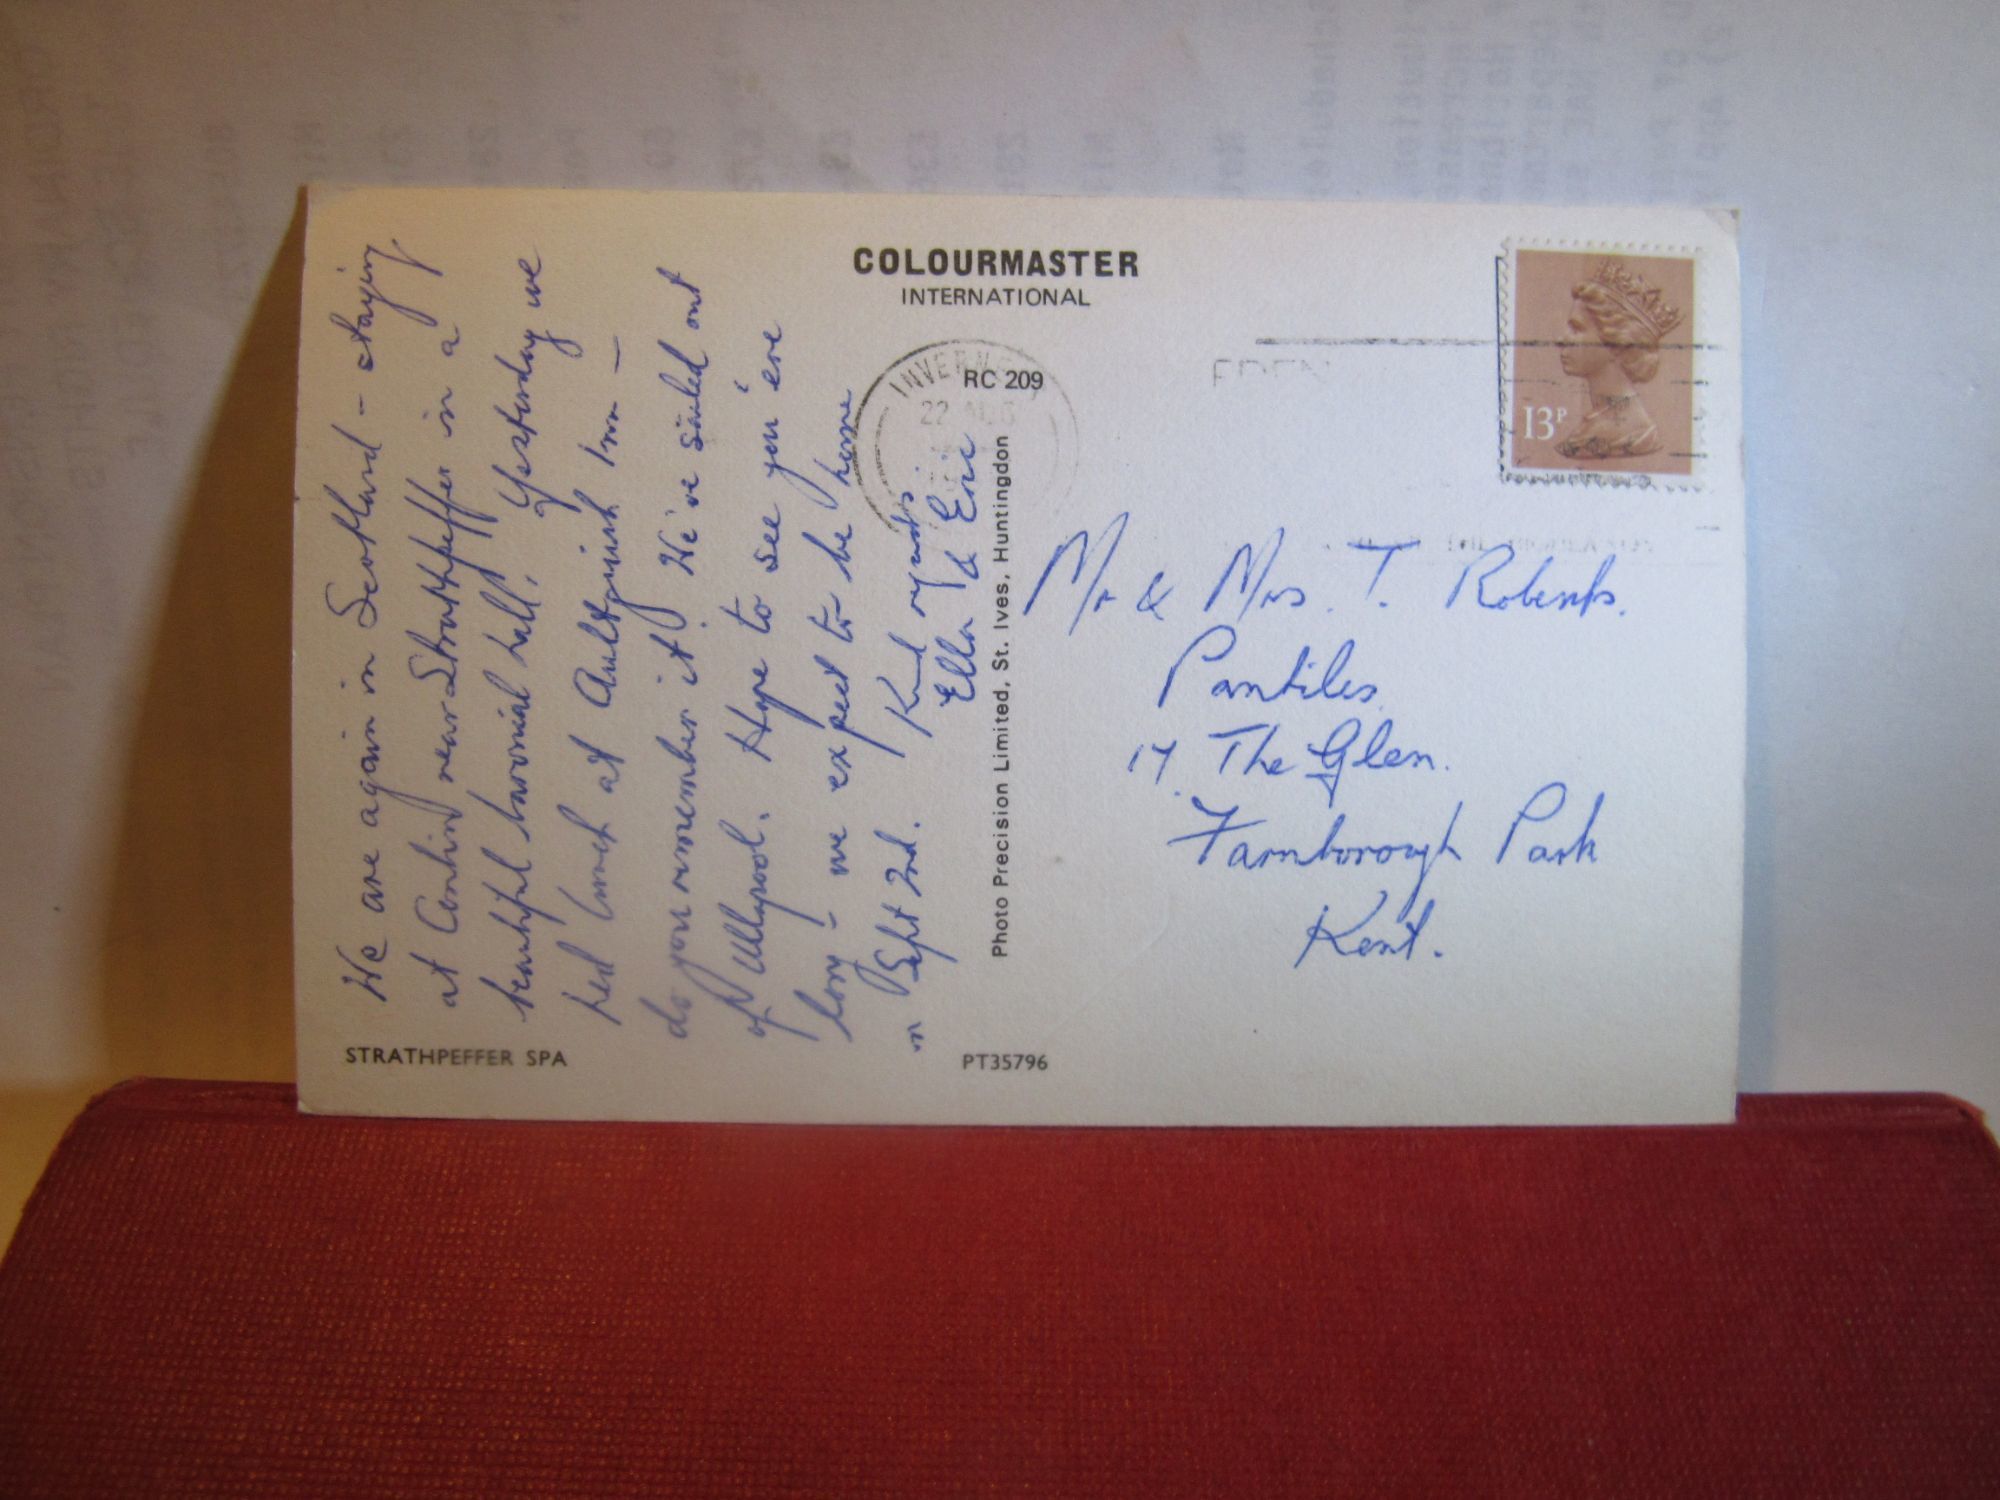 COLOURMASTER
INTERNATIONAL
RC 209
INVERNESS
22 AUG
13P
We are again in Scotland - staying
at Contin near Strathpeffer in a
beautiful baronial hall. Yesterday we
had lunch at Aultguish Inn -
do you remember it? We've sailed out
of Ullapool. Hope to see you 'ere
long - we expect to be home
on Sept 2nd. Kind regards
Ella & Eric
Photo Precision Limited, St. Ives, Huntingdon
Mr & Mrs. T. Roberts.
Pantiles
17. The Glen.
Farnborough Park
Kent.
STRATHPEFFER SPA
PT35796